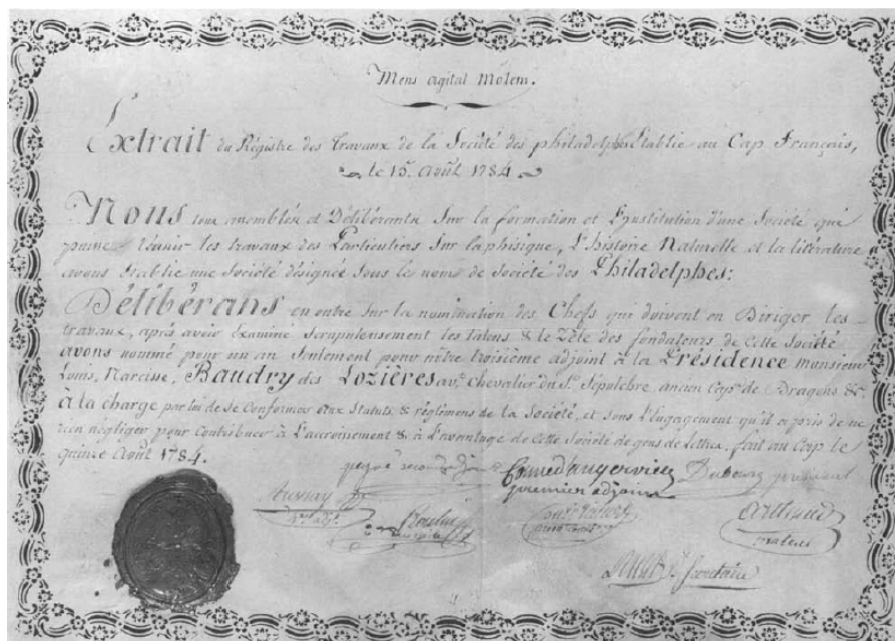 Mens agitat Molem.
Extrait du Régistre des Travaux de la Société des philadelphes Etablie au Cap François,
le 15. Août 1784.
Nous tous assemblés et Délibérants Sur la formation et L'institution d'une Société qui
puisse réunir les travaux des Particuliers Sur la phisique, L'histoire Naturelle et la litérature
avons Etablie une Société désignée Sous le nom de Société des Philadelphes:
Délibérans en outre Sur la nomination des Chefs qui doivent en Diriger les
travaux, après avoir Examiné Scrupuleusement les talens & le Zèle des fondateurs de Cette Société
avons nommé pour un an Seulement pour nôtre troisième adjoint à la Présidence monsieur
Louis, Narcisse, Baudry des Lozières avt. chevalier du St. Sépulchre ancien Capne. de Dragons &c.
à la charge par lui de Se Conformer aux Statuts & réglemens de la Société, et sous L'Engagement qu'il a pris de ne
rien négliger pour Contribuer à L'accroissement & à L'avantage de Cette Société de gens de Lettres, fait au Cap le
quinze Août 1784.
président
premier adjoint
Arthaud
Secrétaire